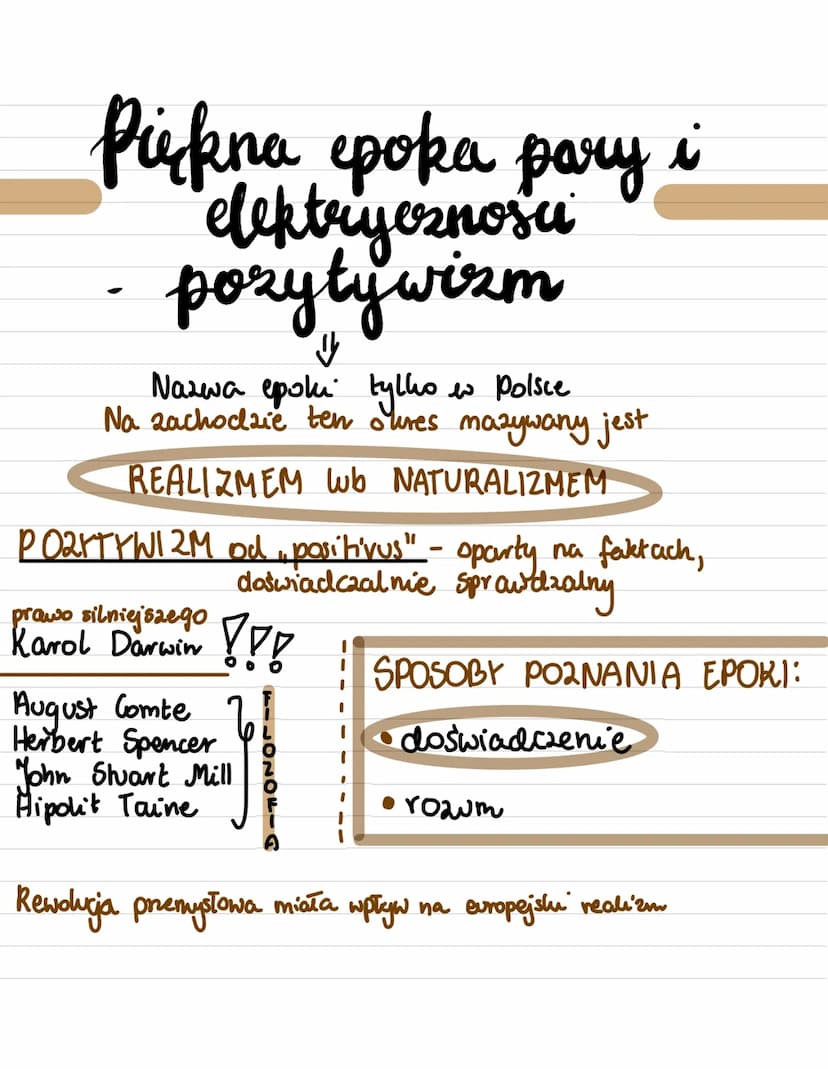 Piękna epoka pary i
elektryczności
- pozytywizm
⇓
Nazwa epoki tylko w Polsce
Na zachodzie ten okres nazywany jest
REALIZMEM lub NATURALIZMEM
POZYTYWIZM od „positivus" - oparty na faktach,
doświadczalnie sprawdzalny
prawo silniejszego
Karol Darwin !!!
August Comte
Herbert Spencer
John Stuart Mill
Hipolit Taine
FILOZOFIA
SPOSOBY POZNANIA EPOKI:
• doświadczenie
• rozum
Rewolucja przemysłowa miała wpływ na europejski realizm